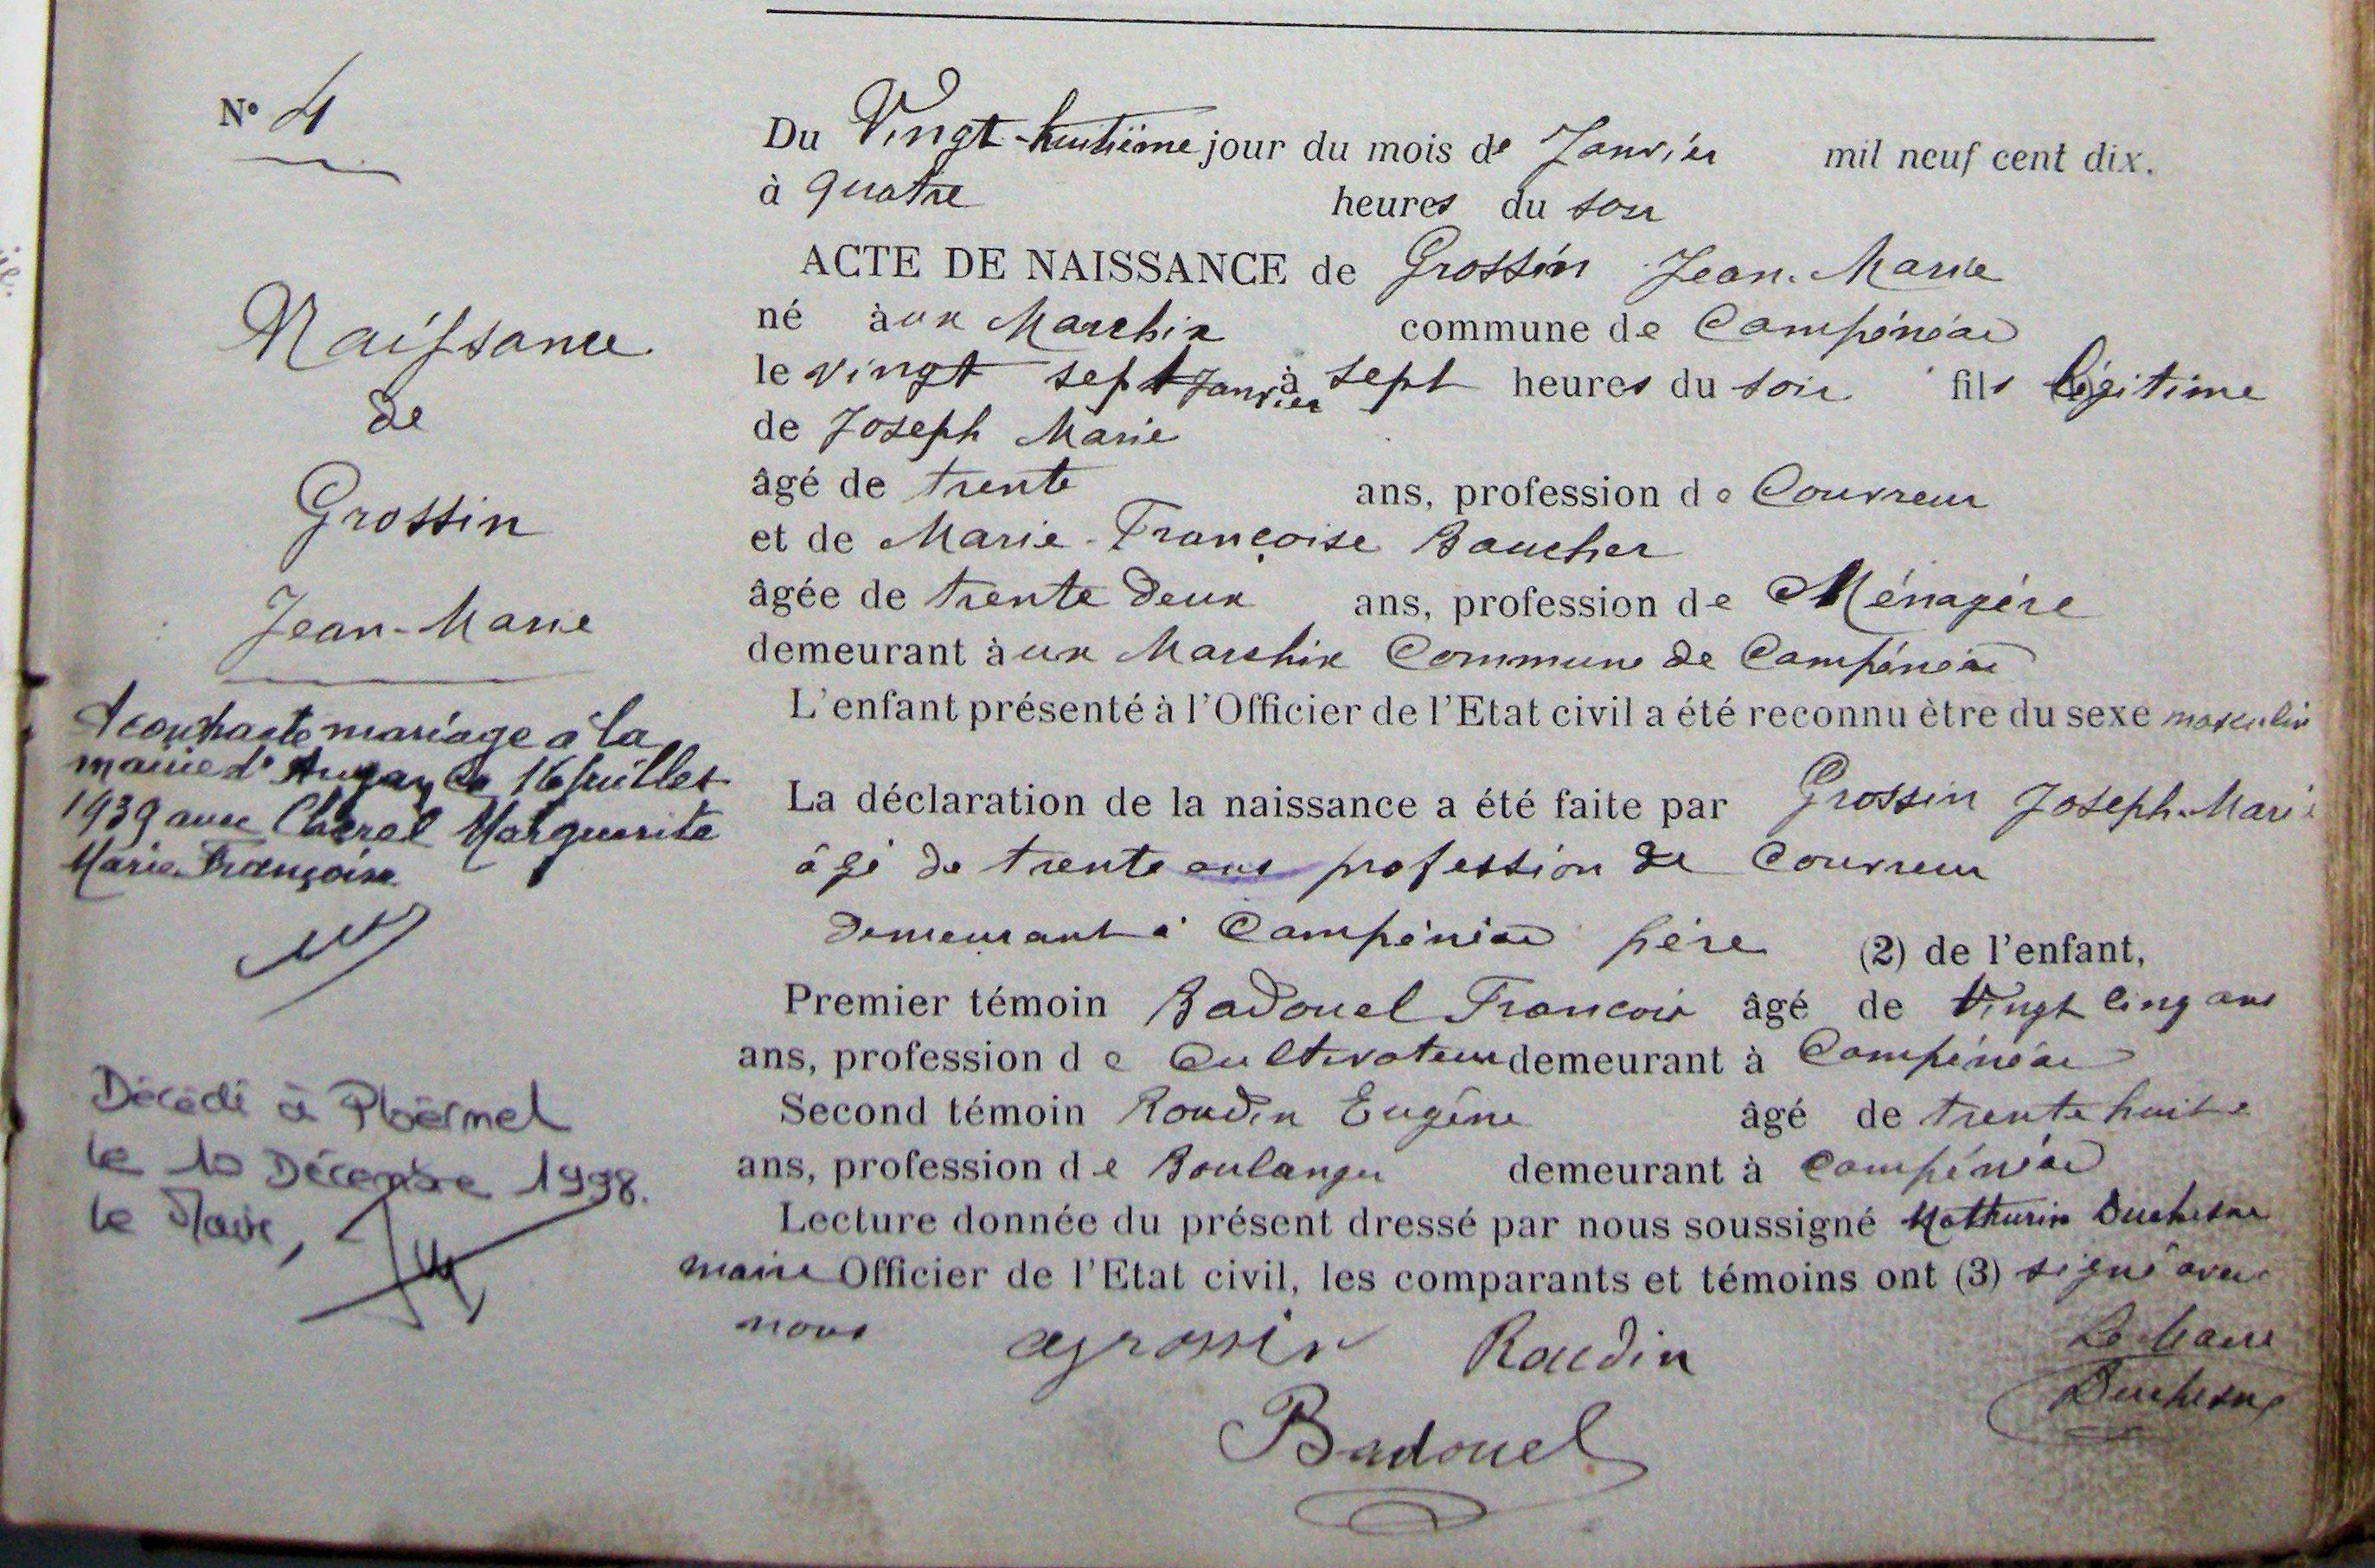 N° 4
Naissance
de
Grossin
Jean-Marie
A contracté mariage à la
mairie d'Augan le 16 juillet
1939 avec Cherel Marguerite
Marie Françoise
Décédé à Ploërmel
le 10 Décembre 1998.
Le Maire,
Du Vingt-huitième jour du mois de Janvier mil neuf cent dix.
à quatre heures du soir
ACTE DE NAISSANCE de Grossin Jean-Marie
né à ux Marchix commune de Campénéac
le vingt sept Janvier à sept heures du soir fils légitime
de Joseph Marie
âgé de trente ans, profession de Couvreur
et de Marie-Françoise Baucher
âgée de trente deux ans, profession de Ménagère
demeurant à ux Marchix Commune de Campénéac
L'enfant présenté à l'Officier de l'Etat civil a été reconnu être du sexe masculin
La déclaration de la naissance a été faite par Grossin Joseph-Marie
âgé de trente ans profession de Couvreur
demeurant à Campénéac père (2) de l'enfant,
Premier témoin Badouel François âgé de Vingt cinq ans
ans, profession de Cultivateur demeurant à Campénéac
Second témoin Roudin Eugène âgé de trente huit
ans, profession de Boulanger demeurant à Campénéac
Lecture donnée du présent dressé par nous soussigné Mathurin Duchesne
maire Officier de l'Etat civil, les comparants et témoins ont (3) signé avec
nous grossin Roudin Le Maire
Duchesne
Badouel